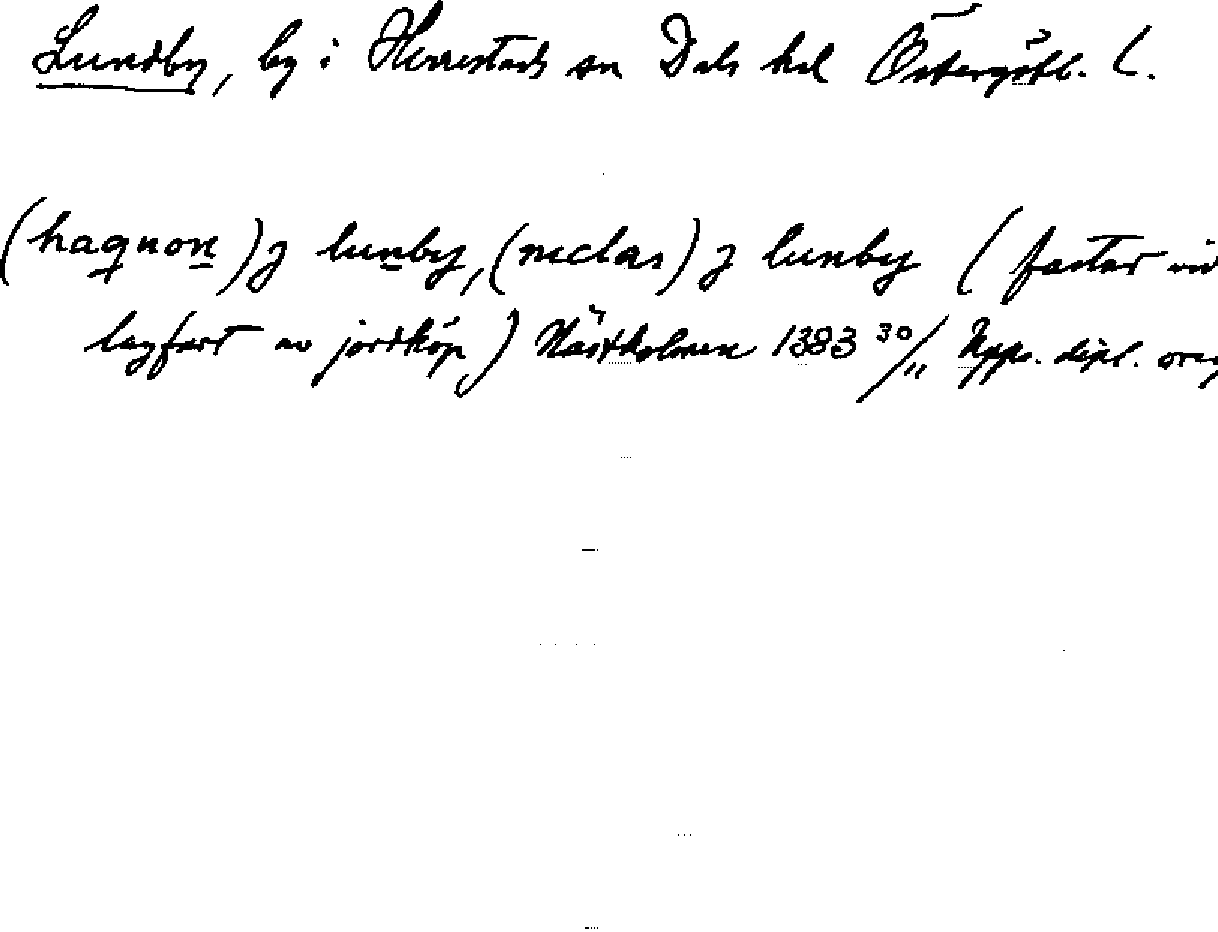 Lundby, by i Herrestads sn Dals hd Östergötl. l.
(haquon) j lunby, (niclas) j lunby (fastar vid
lagfart av jordköp) Hästholmen 1383 30/11 Upps. dipl. orig